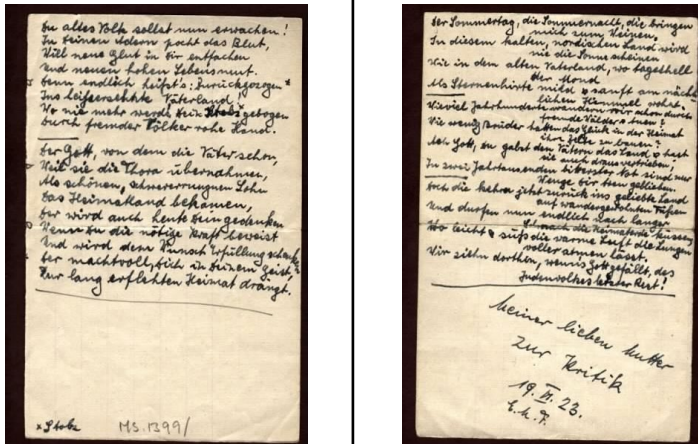 Du altes Volk sollst nun erwachen!
In deinen Adern pocht das Blut,
Will neue Glut in Dir entfachen
Und neuen hohen Lebensmut.
Denn endlich heißt's: Zurückgezogen
Ins heißersehnte Vaterland!
Wo nie mehr werde Dein Stolz gebogen
Durch fremder Völker rohe Hand.
Der Gott, von dem die Väter schon,
Weil sie die Thora übernahmen,
Als schönen, schwererrungnen Lohn
Das Heimatland bekamen,
Der wird auch heute Dein gedenken
Wenn Du die nötige Kraft beweist
Und wird dem Wunsch Erfüllung schenken
Der machtvoll, Dich in Deinem Geist,
Zur lang erflehten Heimat drängt.
x Stolz
MS. 1399/
Der Sommertag, die Sommernacht, die bringen
mich zum Weinen,
In diesem kalten, nordischen Land wird
nie die Sonne scheinen
Wie in dem alten Vaterland, wo tageshell
der Mond
Als Sternenhirte mild & sanft am nächt
lichen Himmel wohnt.
Wieviel Jahrhunderte wandern wir schon durch
fremde Wälder &
Wie wenig Brüder hatten das Glück in der Heimat
ihr Zelte zu bauen?
Ach Gott, Du gabst den Vätern das Land & hast
sie auch draus vertrieben,
In zwei Jahrtausenden bitterster Not sind nur
wenge Dir treu geblieben.
Doch die kehrn jetzt zurück ins geliebte Land
auf wandergewohnten Füßen
Und dürfen nun endlich nach langer
die Heimaterde küssen,
Wo leicht & süß die warme Luft die Lungen
voller atmen lässt.
Wir ziehn dorthin, wenns Gott gefällt, des
Judenvolkes letzter Rest!
Meiner lieben Mutter
zur Kritik
19. 23.